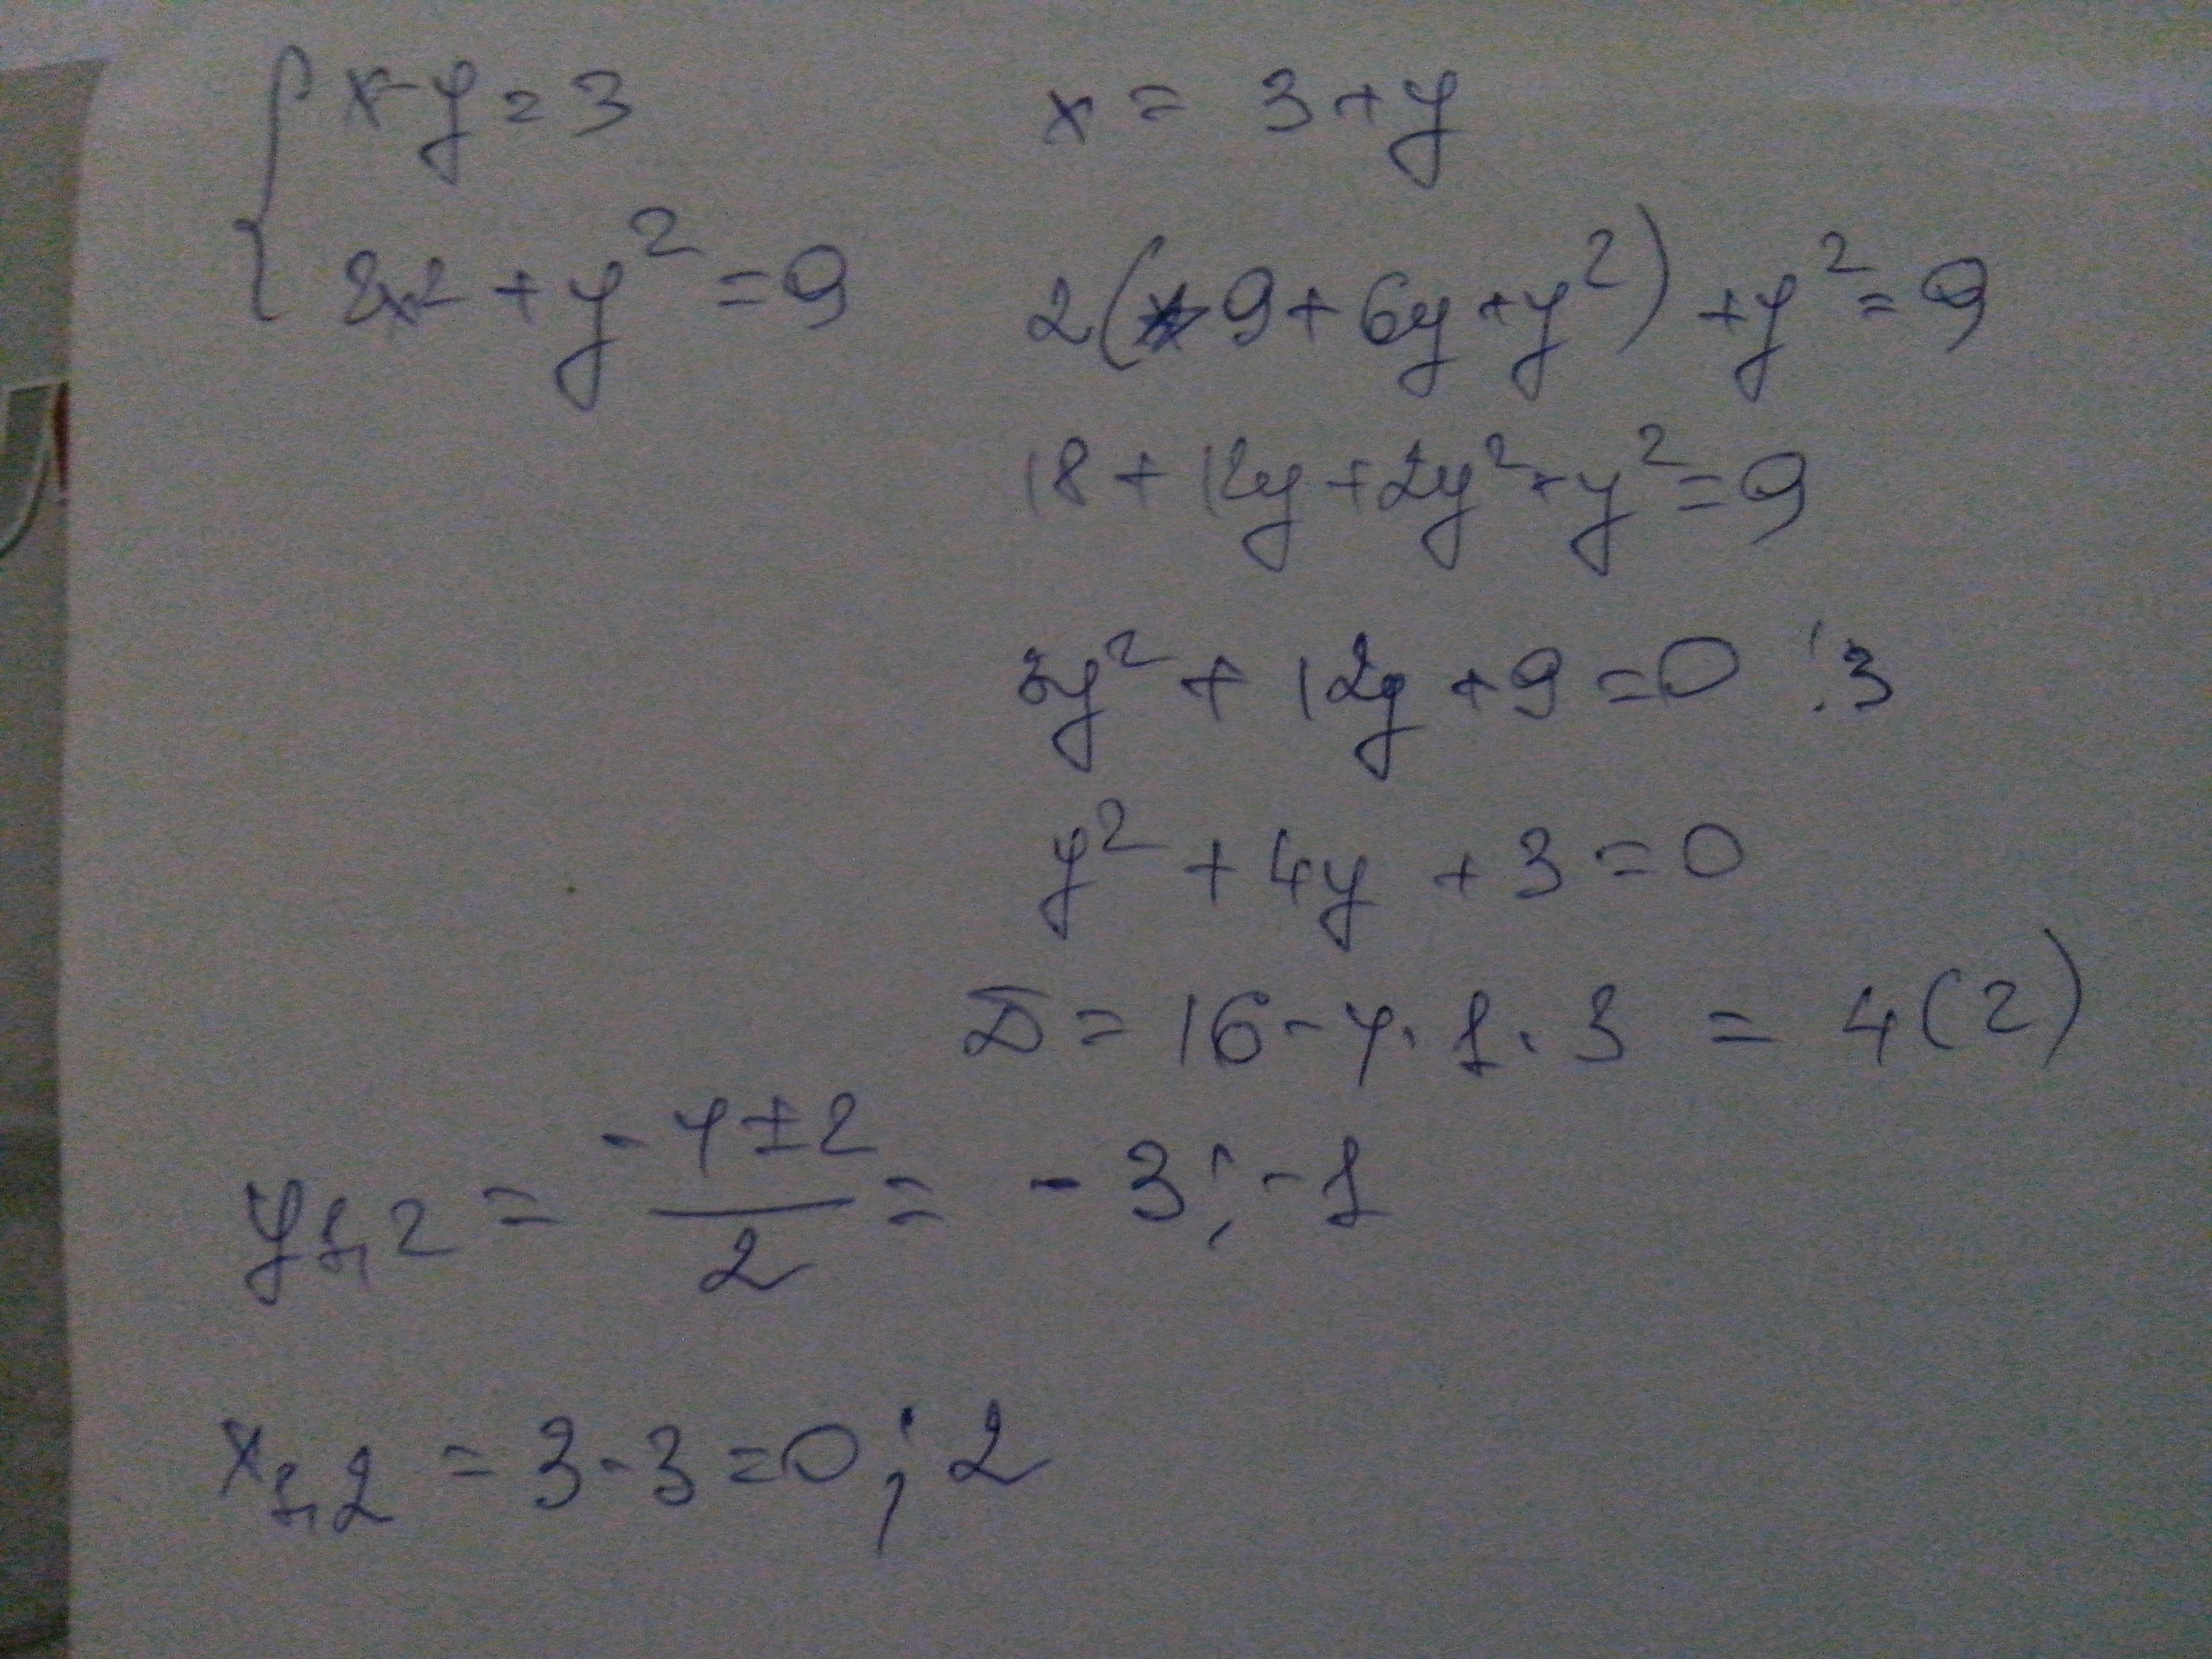 { x-y=3
2x²+y²=9
x = 3+y
2(9+6y+y²)+y²=9
18+12y+2y²+y²=9
3y²+12y+9=0 :3
y²+4y+3=0
D=16-4·1·3 = 4(2)
y₁,₂ = (-4±2)/2 = -3; -1
x₁,₂ = 3-3=0; 2